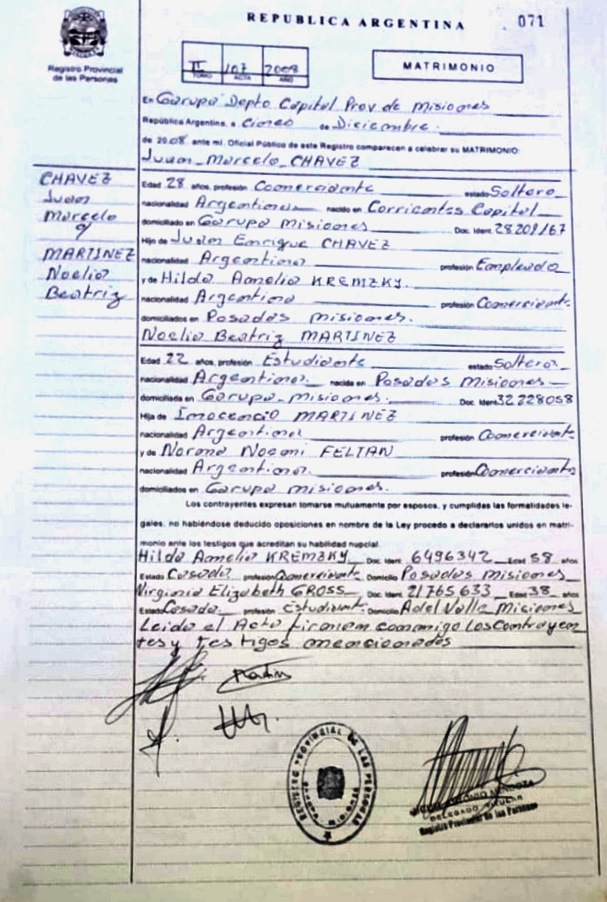 REPUBLICA ARGENTINA 071
Registro Provincial
de las Personas
II 107 2008
TOMO ACTA AÑO
MATRIMONIO
En Garupá Depto Capital Prov de Misiones
República Argentina, a Cinco de Diciembre
de 2008 ante mí, Oficial Público de este Registro comparecen a celebrar su MATRIMONIO:
Juan Marcelo CHAVEZ
CHAVEZ
Juan
Marcelo
y
MARTINEZ
Noelia
Beatriz
Edad 28 años, profesión Comerciante estado Soltero
nacionalidad Argentina nacido en Corrientes Capital
domiciliado en Garupá Misiones Doc. Ident. 28.209.167
Hijo de Juan Enrique CHAVEZ
nacionalidad Argentina profesión Empleado
y de Hilda Amelia KREMZKY.
nacionalidad Argentina profesión Comerciante
domiciliados en Posadas Misiones.
Noelia Beatriz MARTINEZ
Edad 22 años, profesión Estudiante estado Soltera
nacionalidad Argentina nacida en Posadas Misiones
domiciliada en Garupá Misiones. Doc. Ident. 32228058
Hija de Inocencio MARTINEZ
nacionalidad Argentina profesión Comerciante
y de Norma Noemi FELTAN
nacionalidad Argentina profesión Comerciante
domiciliados en Garupá Misiones.
Los contrayentes expresan tomarse mutuamente por esposos, y cumplidas las formalidades le-
gales, no habiéndose deducido oposiciones en nombre de la Ley procedo a declararlos unidos en matri-
monio ante los testigos que acreditan su habilidad nupcial.
Hilda Amelia KREMZKY Doc. Ident. 6496342 Edad 58 años
Estado Casada profesión Comerciante Domicilio Posadas Misiones
Virginia Elizabeth GROSS Doc. Ident. 21765.633 Edad 38 años
Estado Casada profesión Estudiante Domicilio A del Valle Misiones
Leida el Acta firman conmigo los Contrayen
tes y Testigos mencionados
REGISTRO PROVINCIAL DE LAS PERSONAS
MENDOZA
DELEGADO TITULAR
Registro Provincial de las Personas